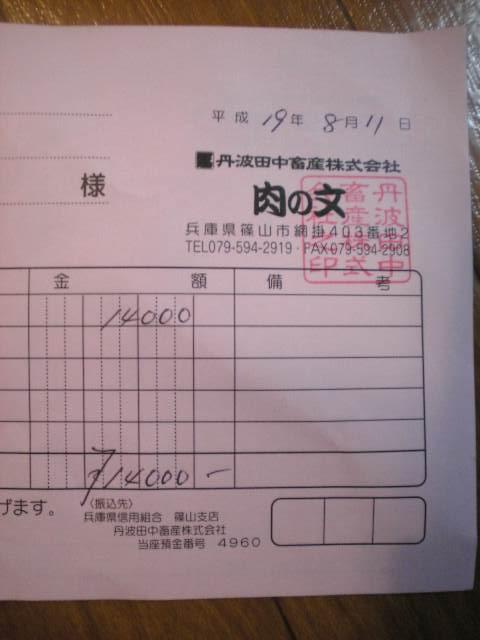 平成 19年 8月 11日
丹波田中畜産株式会社
様
肉の文
丹波田中畜産株式会社之印
兵庫県篠山市網掛403番地2
TEL079-594-2919・FAX079-594-2908
金額 備考
14000
¥14000-
げます。
〈振込先〉
兵庫県信用組合 篠山支店
丹波田中畜産株式会社
当座預金番号 4960